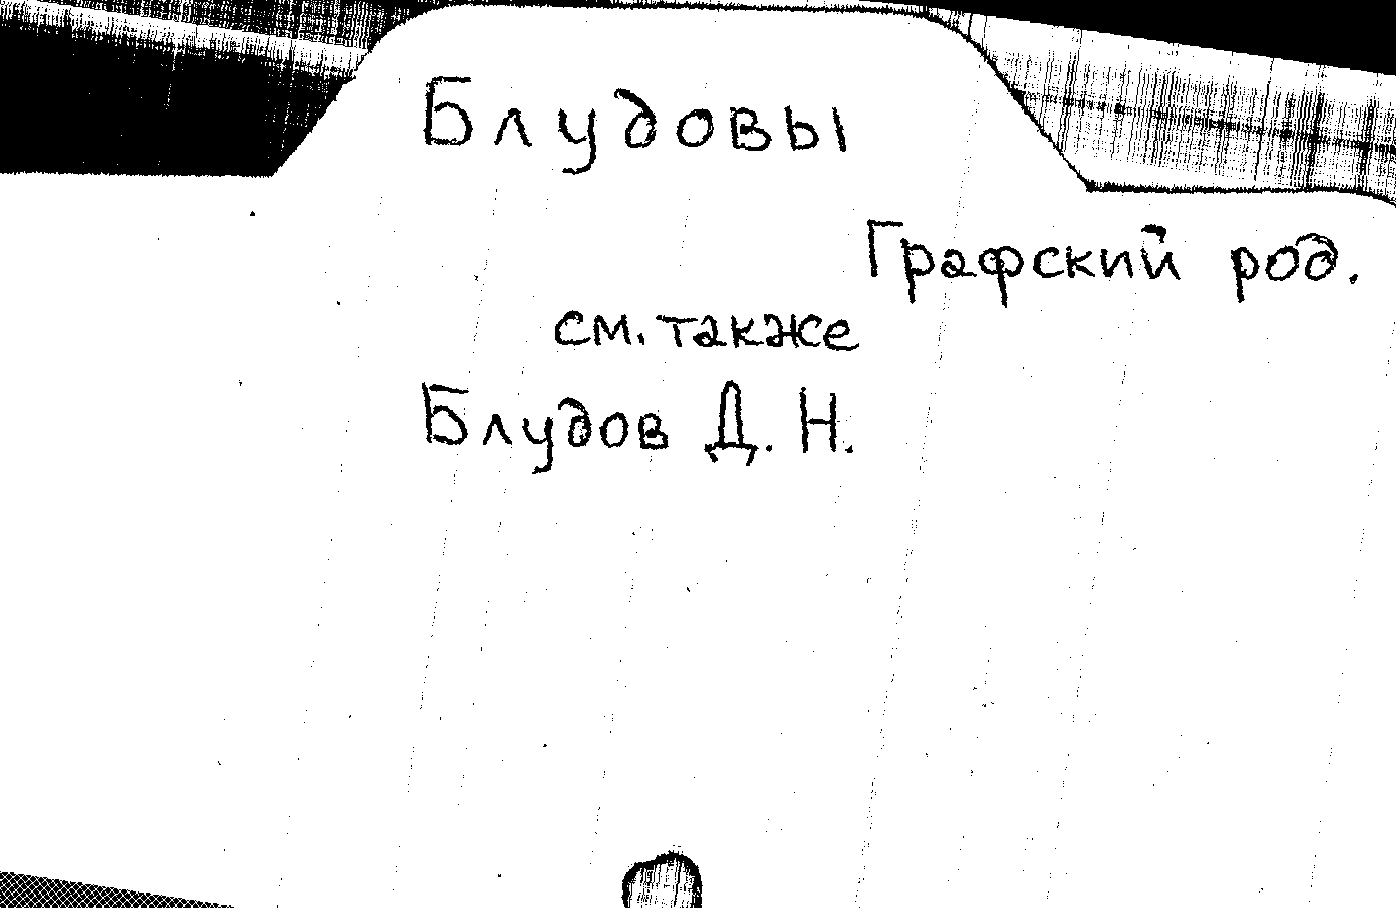 Блудовы
Графский род.
см. также
Блудов Д. Н.